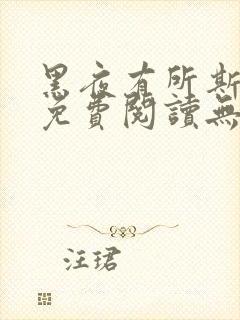 黑夜有所斯
免費閱讀無
汪珺